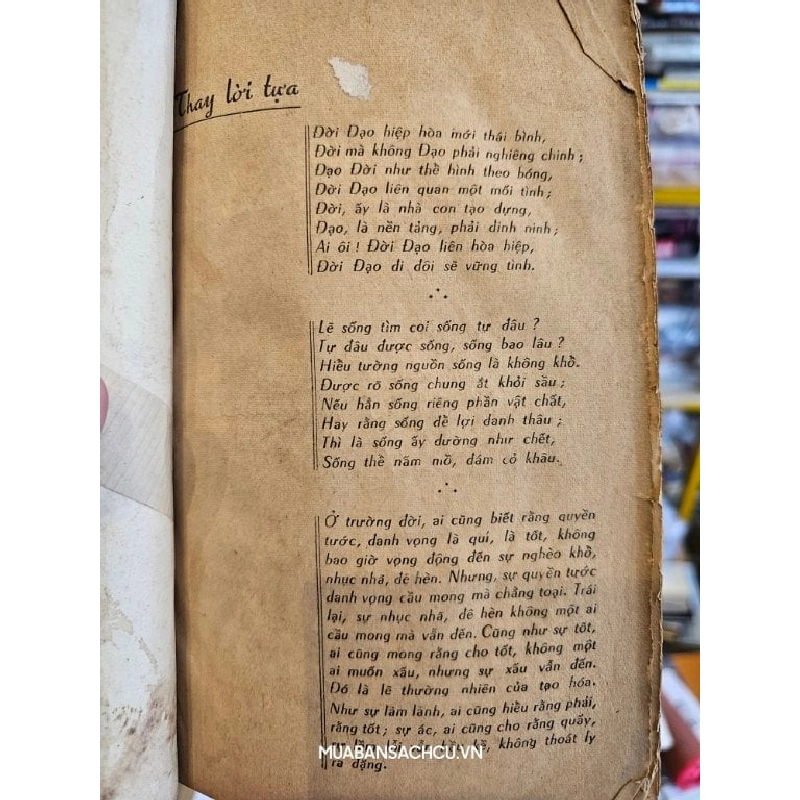 Thay lời tựa
Đời Đạo hiệp hòa mới thái bình,
Đời mà không Đạo phải nghiêng chinh ;
Đạo Đời như thể hình theo bóng,
Đời Đạo liên quan một mối tình ;
Đời, ấy là nhà con tạo dựng,
Đạo, là nền tảng, phải dinh ninh ;
Ai ôi ! Đời Đạo liên hòa hiệp,
Đời Đạo di đôi sẽ vững tình.
Lẽ sống tìm coi sống tự đâu ?
Tự đâu được sống, sống bao lâu ?
Hiểu tường nguồn sống là không khổ.
Được rõ sống chung ắt khỏi sầu ;
Nếu hẳn sống riêng phần vật chất,
Hay rằng sống để lợi danh thâu ;
Thì là sống ấy dường như chết,
Sống thể nấm mồ, đám cỏ khâu.
Ở trường đời, ai cũng biết rằng quyền
tước, danh vọng là quí, là tốt, không
bao giờ vọng động đến sự nghèo khổ,
nhục nhã, đê hèn. Nhưng, sự quyền tước
danh vọng cầu mong mà chẳng toại. Trái
lại, sự nhục nhã, đê hèn không một ai
cầu mong mà vẫn đến. Cũng như sự tốt,
ai cũng mong rằng cho tốt, không một
ai muốn xấu, nhưng sự xấu vẫn đến.
Đó là lẽ thường nhiên của tạo hóa.
Như sự lầm lành, ai cũng hiểu rằng phải,
rằng tốt ; sự ác, ai cũng cho rằng quấy,
không thoát ly
ra đặng.
MUABANSACHCU.VN